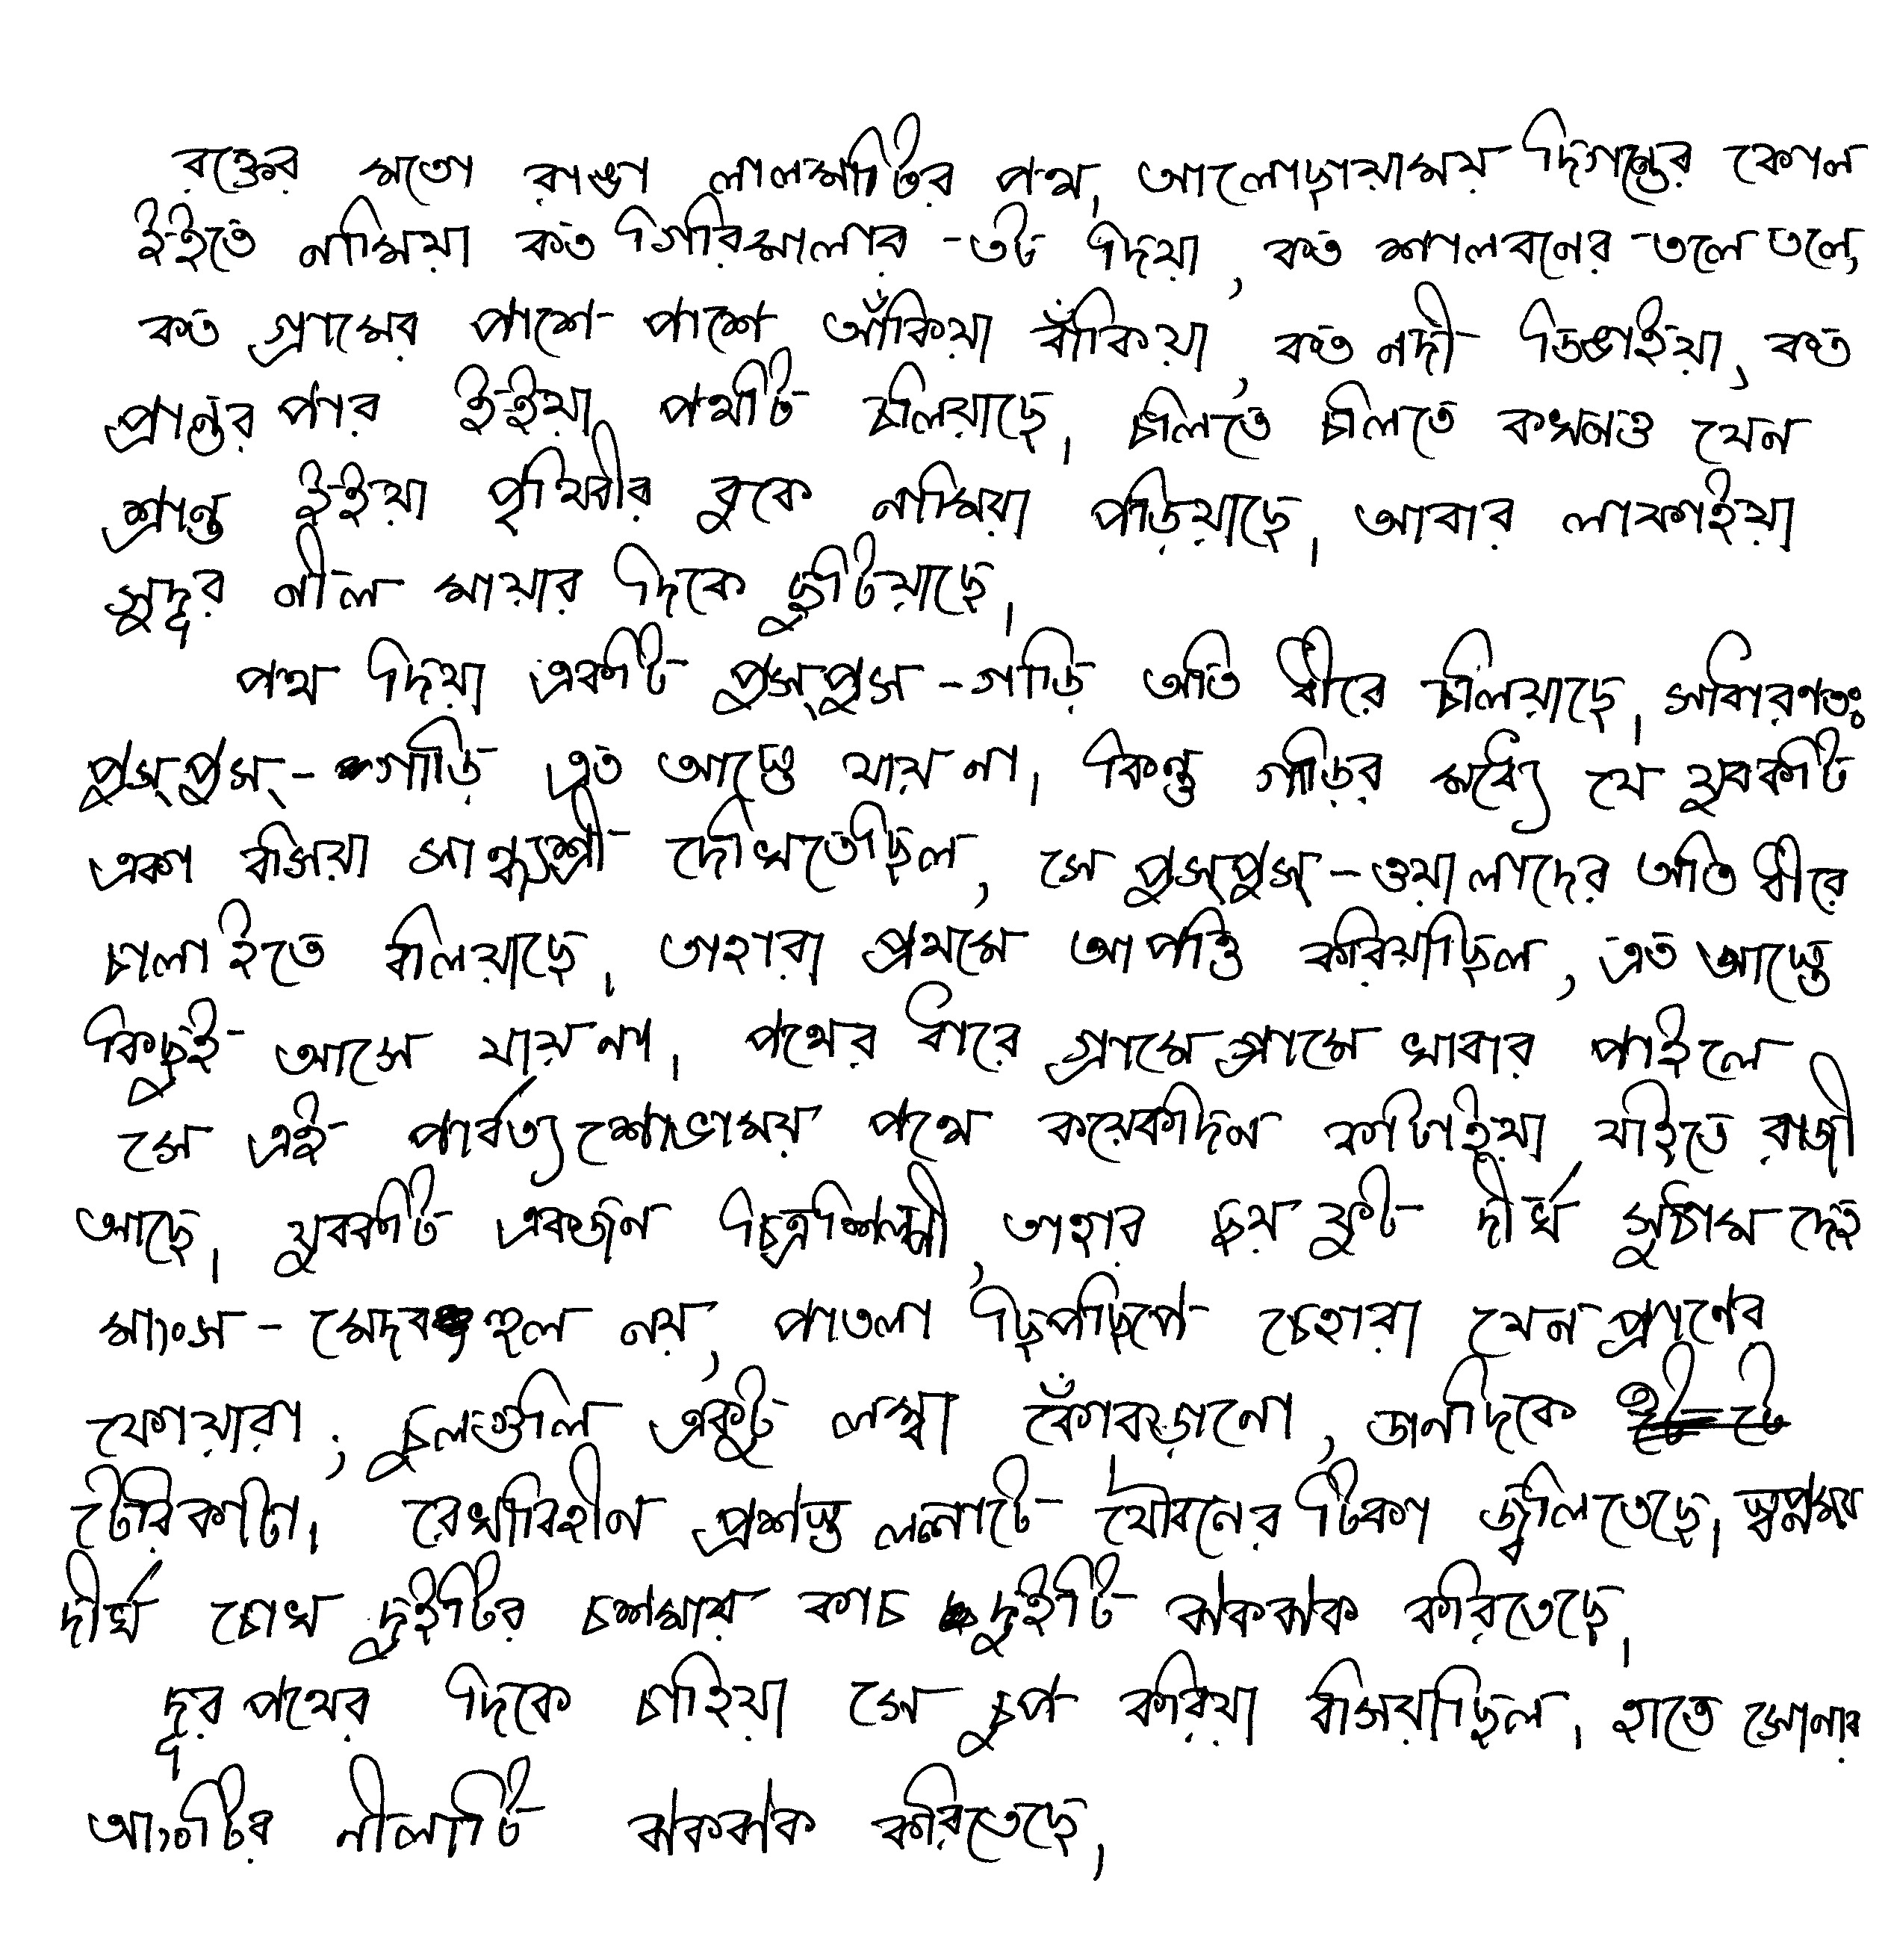 রক্তের মতো রাঙা লালমাটির পথ, আলোছায়াময় দিগন্তের কোল
হইতে নামিয়া কত গিরিমালার তট দিয়া, কত শালবনের তলে তলে,
কত গ্রামের পাশে পাশে আঁকিয়া বাঁকিয়া, কত নদী ডিঙাইয়া, কত
প্রান্তর পার হইয়া পথটি চলিয়াছে। চলিতে চলিতে কখনও যেন
শ্রান্ত হইয়া পৃথিবীর বুকে নামিয়া পড়িয়াছে, আবার লাফাইয়া
সুদূর নীল মায়ার দিকে ছুটিয়াছে।
পথ দিয়া একটি পুস্‌পুস-গাড়ি অতি ধীরে চলিয়াছে। সাধারণতঃ
পুস্‌পুস্‌-গাড়ি এত আস্তে যায় না। কিন্তু গাড়ির মধ্যে যে যুবকটি
একা বসিয়া সান্ধ্যশ্রী দেখিতেছিল, সে পুস্‌পুস্‌-ওয়ালাদের অতি ধীরে
চালাইতে বলিয়াছে। তাহারা প্রথমে আপত্তি করিয়াছিল, এত আস্তে
কিছুই আসে যায় না। পথের ধারে গ্রামে গ্রামে খাবার পাইলে
সে এই পার্বত্যশোভাময় পথে কয়েকদিন কাটাইয়া যাইতে রাজী
আছে। যুবকটি একজন চিত্রশিল্পী, তাহার ছয় ফুট দীর্ঘ সুঠাম দেহ
মাংস-মেদবহুল নয়, পাতলা ছিপছিপে চেহারা যেন প্রাণের
ফোয়ারা; চুলগুলি একটু লম্বা কোঁকড়ানো, ডানদিকে
টেরিকাটা। রেখাবিহীন প্রশস্ত ললাটে যৌবনের টিকা জ্বলিতেছে। স্বপ্নময়
দীর্ঘ চোখ দুইটির চশমার কাচ দুইটি ঝকঝক করিতেছে।
দূর পথের দিকে চাহিয়া সে চুপ করিয়া বসিয়াছিল। হাতে সোনার
আংটির নীলাটি ঝকঝক করিতেছে।